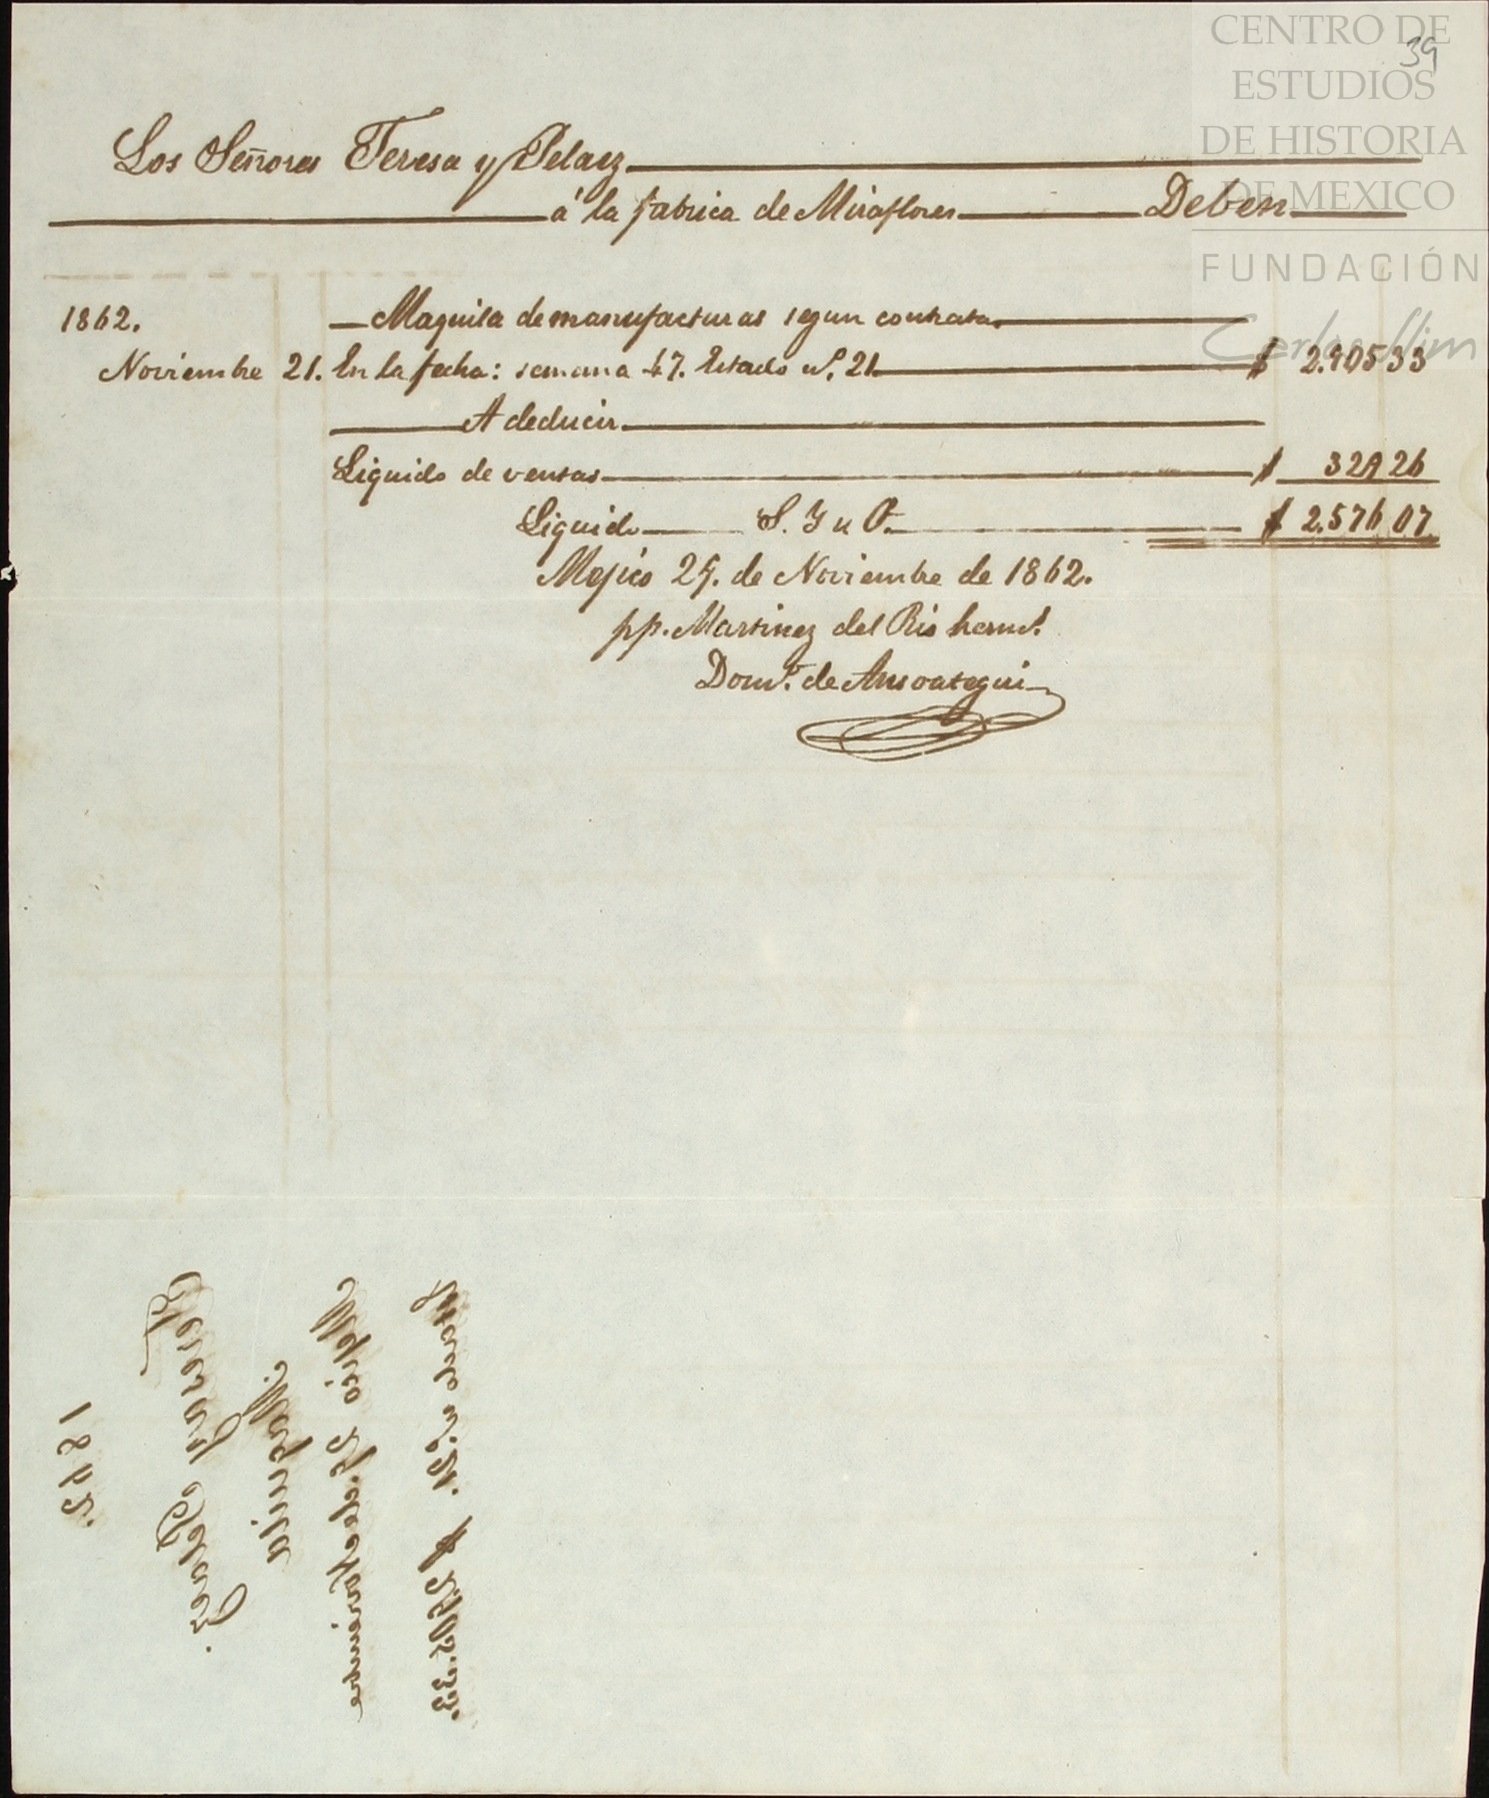 39
CENTRO DE
ESTUDIOS
DE HISTORIA
DE MEXICO
FUNDACIÓN
Carlos Slim
Los Señores Teresa y Pelaez
á la fabrica de Miraflores Deben
1862.
Maquila de manufacturas segun contrata.
Noviembre 21. En la fecha: semana 47. Estado nº. 21. $ 2.905 33
A deducir
Liquido de ventas $ 329 26
Liquido S. Y u O. $ 2.576 07
Mejico 25. de Noviembre de 1862.
pp. Martinez del Rio hermˢ.
Domº. de Ansoategui
1862.
Teresa y Pelaez.
Maquila
Mejico 25. de Noviembre
$ 2.905.33.